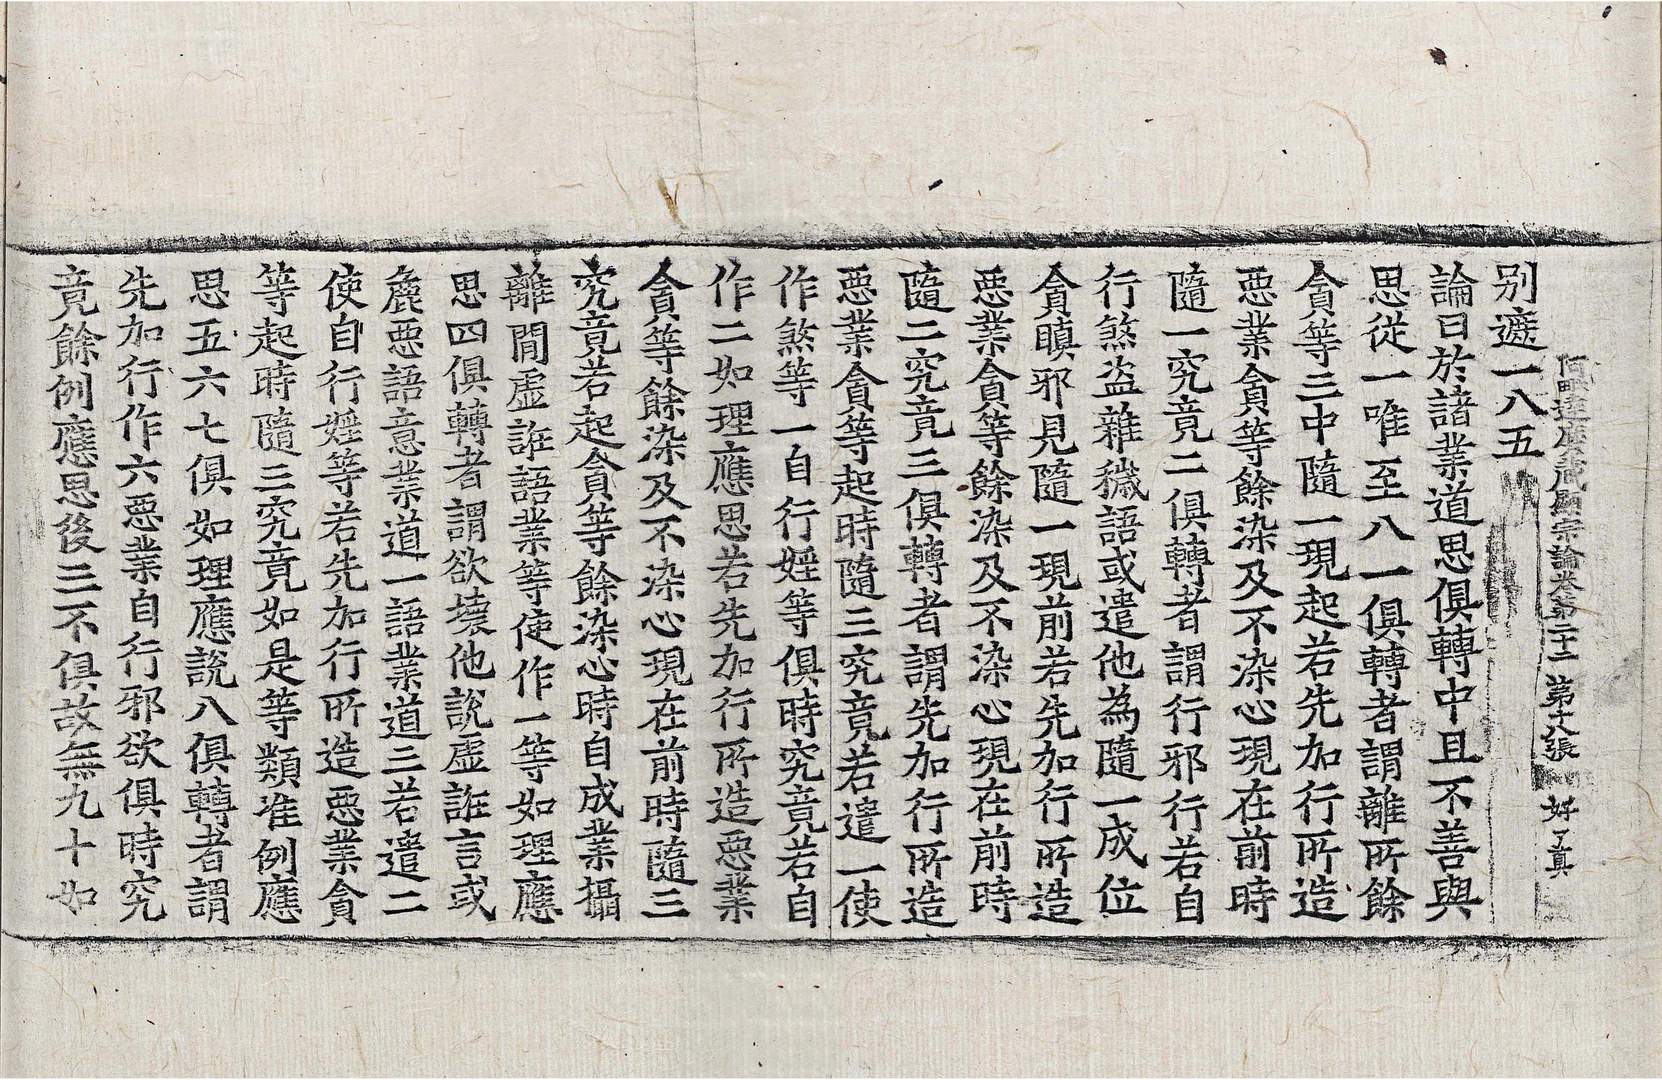 阿毗達磨藏顯宗論卷第二十二 第十張 好
別遮一八五
論曰於諸業道思俱轉中且不善與
思從一唯至八一俱轉者謂離所餘
貪等三中隨一現起若先加行所造
惡業貪等餘染及不染心現在前時
隨一究竟二俱轉者謂行邪行若自
行煞盜雜穢語或遣他為隨一成位
貪瞋邪見隨一現前若先加行所造
惡業貪等餘染及不染心現在前時
隨二究竟三俱轉者謂先加行所造
惡業貪等起時隨三究竟若遣一使
作煞等一自行婬等俱時究竟若自
作二如理應思若先加行所造惡業
貪等餘染及不染心現在前時隨三
究竟若起貪等餘染心時自成業攝
離間虛誑語業等使作一等如理應
思四俱轉者謂欲壞他說虛誑言或
麁惡語意業道一語業道三若遣二
使自行婬等若先加行所造惡業貪
等起時隨三究竟如是等類准例應
思五六七俱如理應說八俱轉者謂
先加行作六惡業自行邪欲俱時究
竟餘例應思後三不俱故無九十如